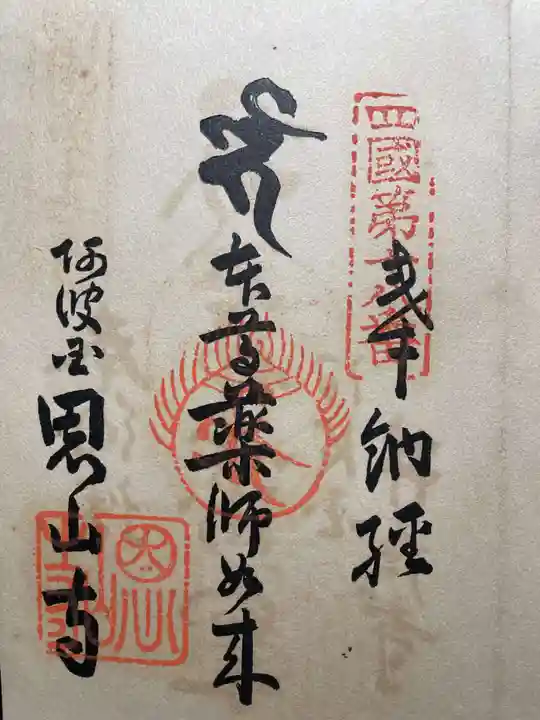 四國第十八番
奉納經
本尊薬師如来
阿波国恩山寺